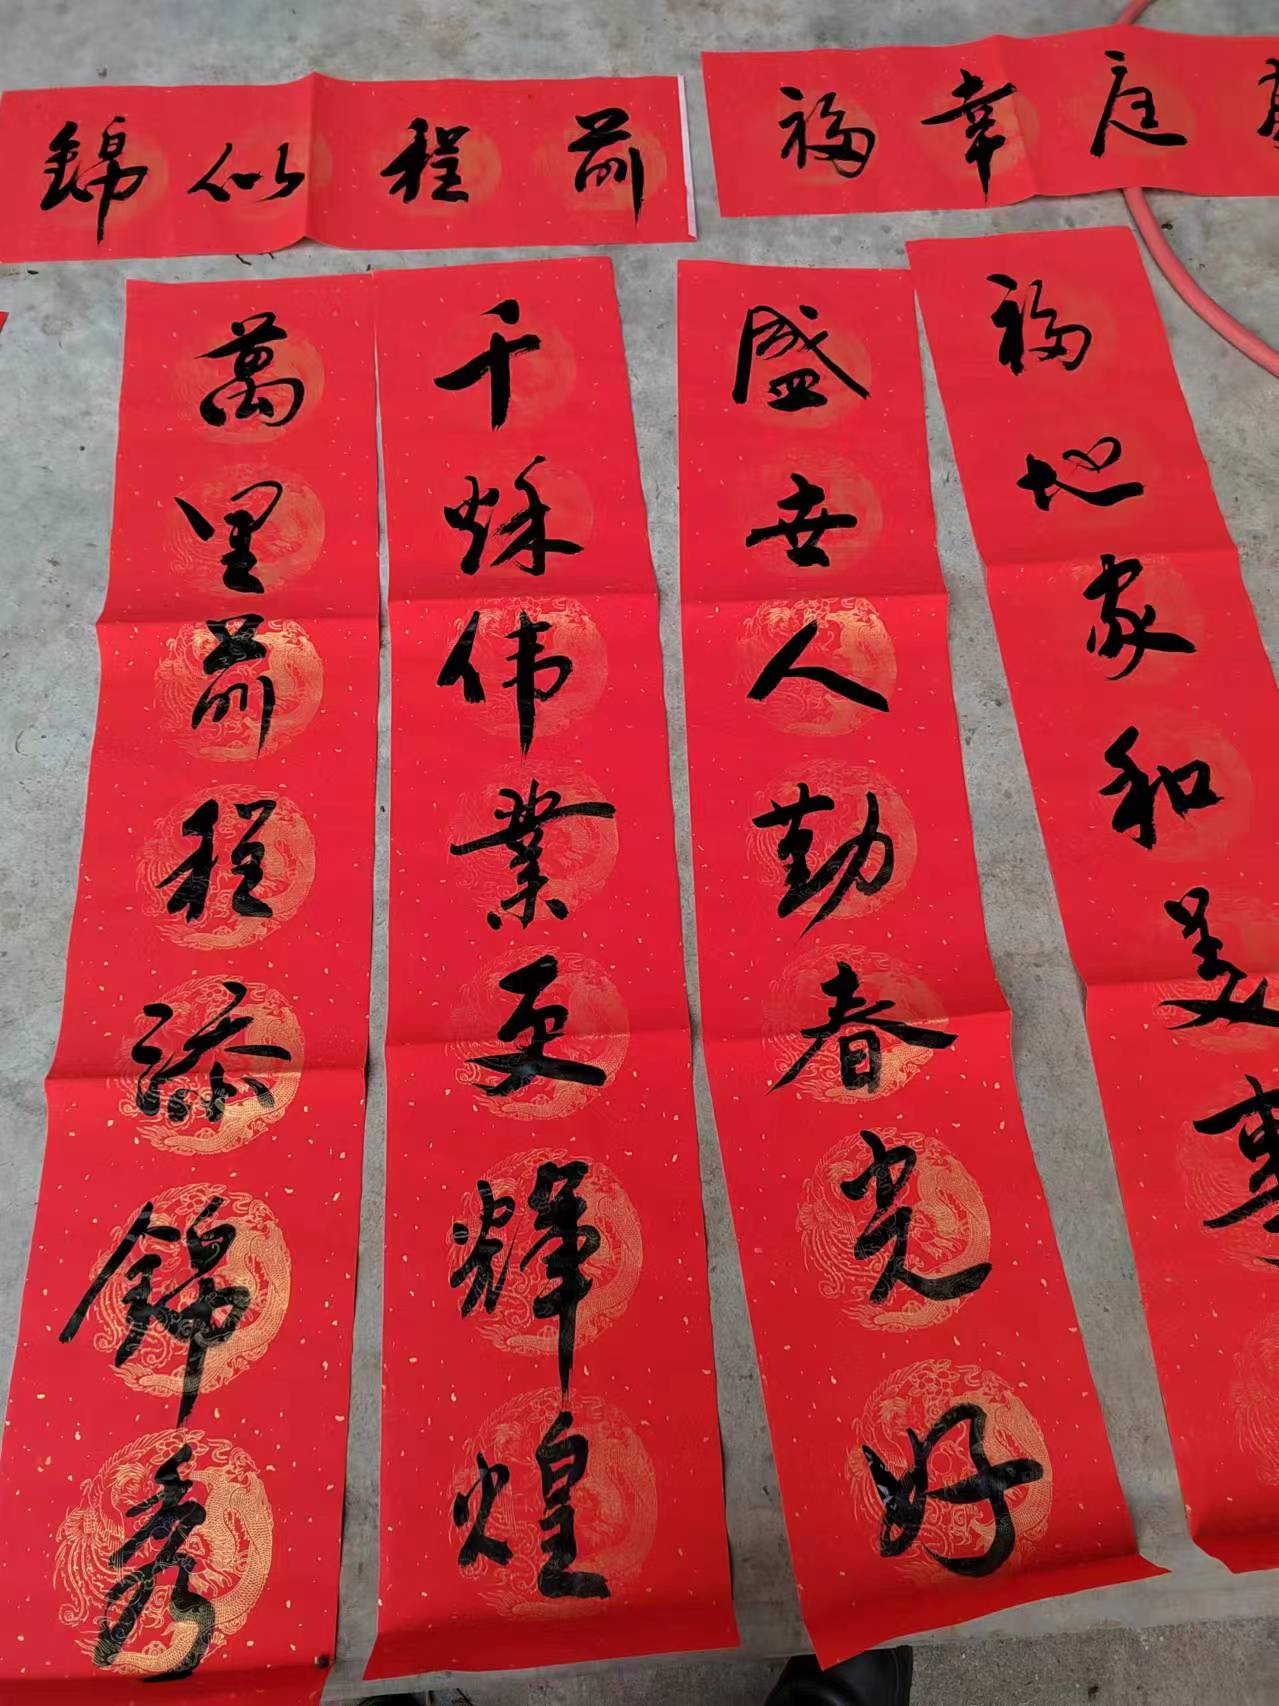 前程似錦
庭幸福
福地家和美事
盛世人勤春光好
千秋伟業更輝煌
萬里前程添錦秀